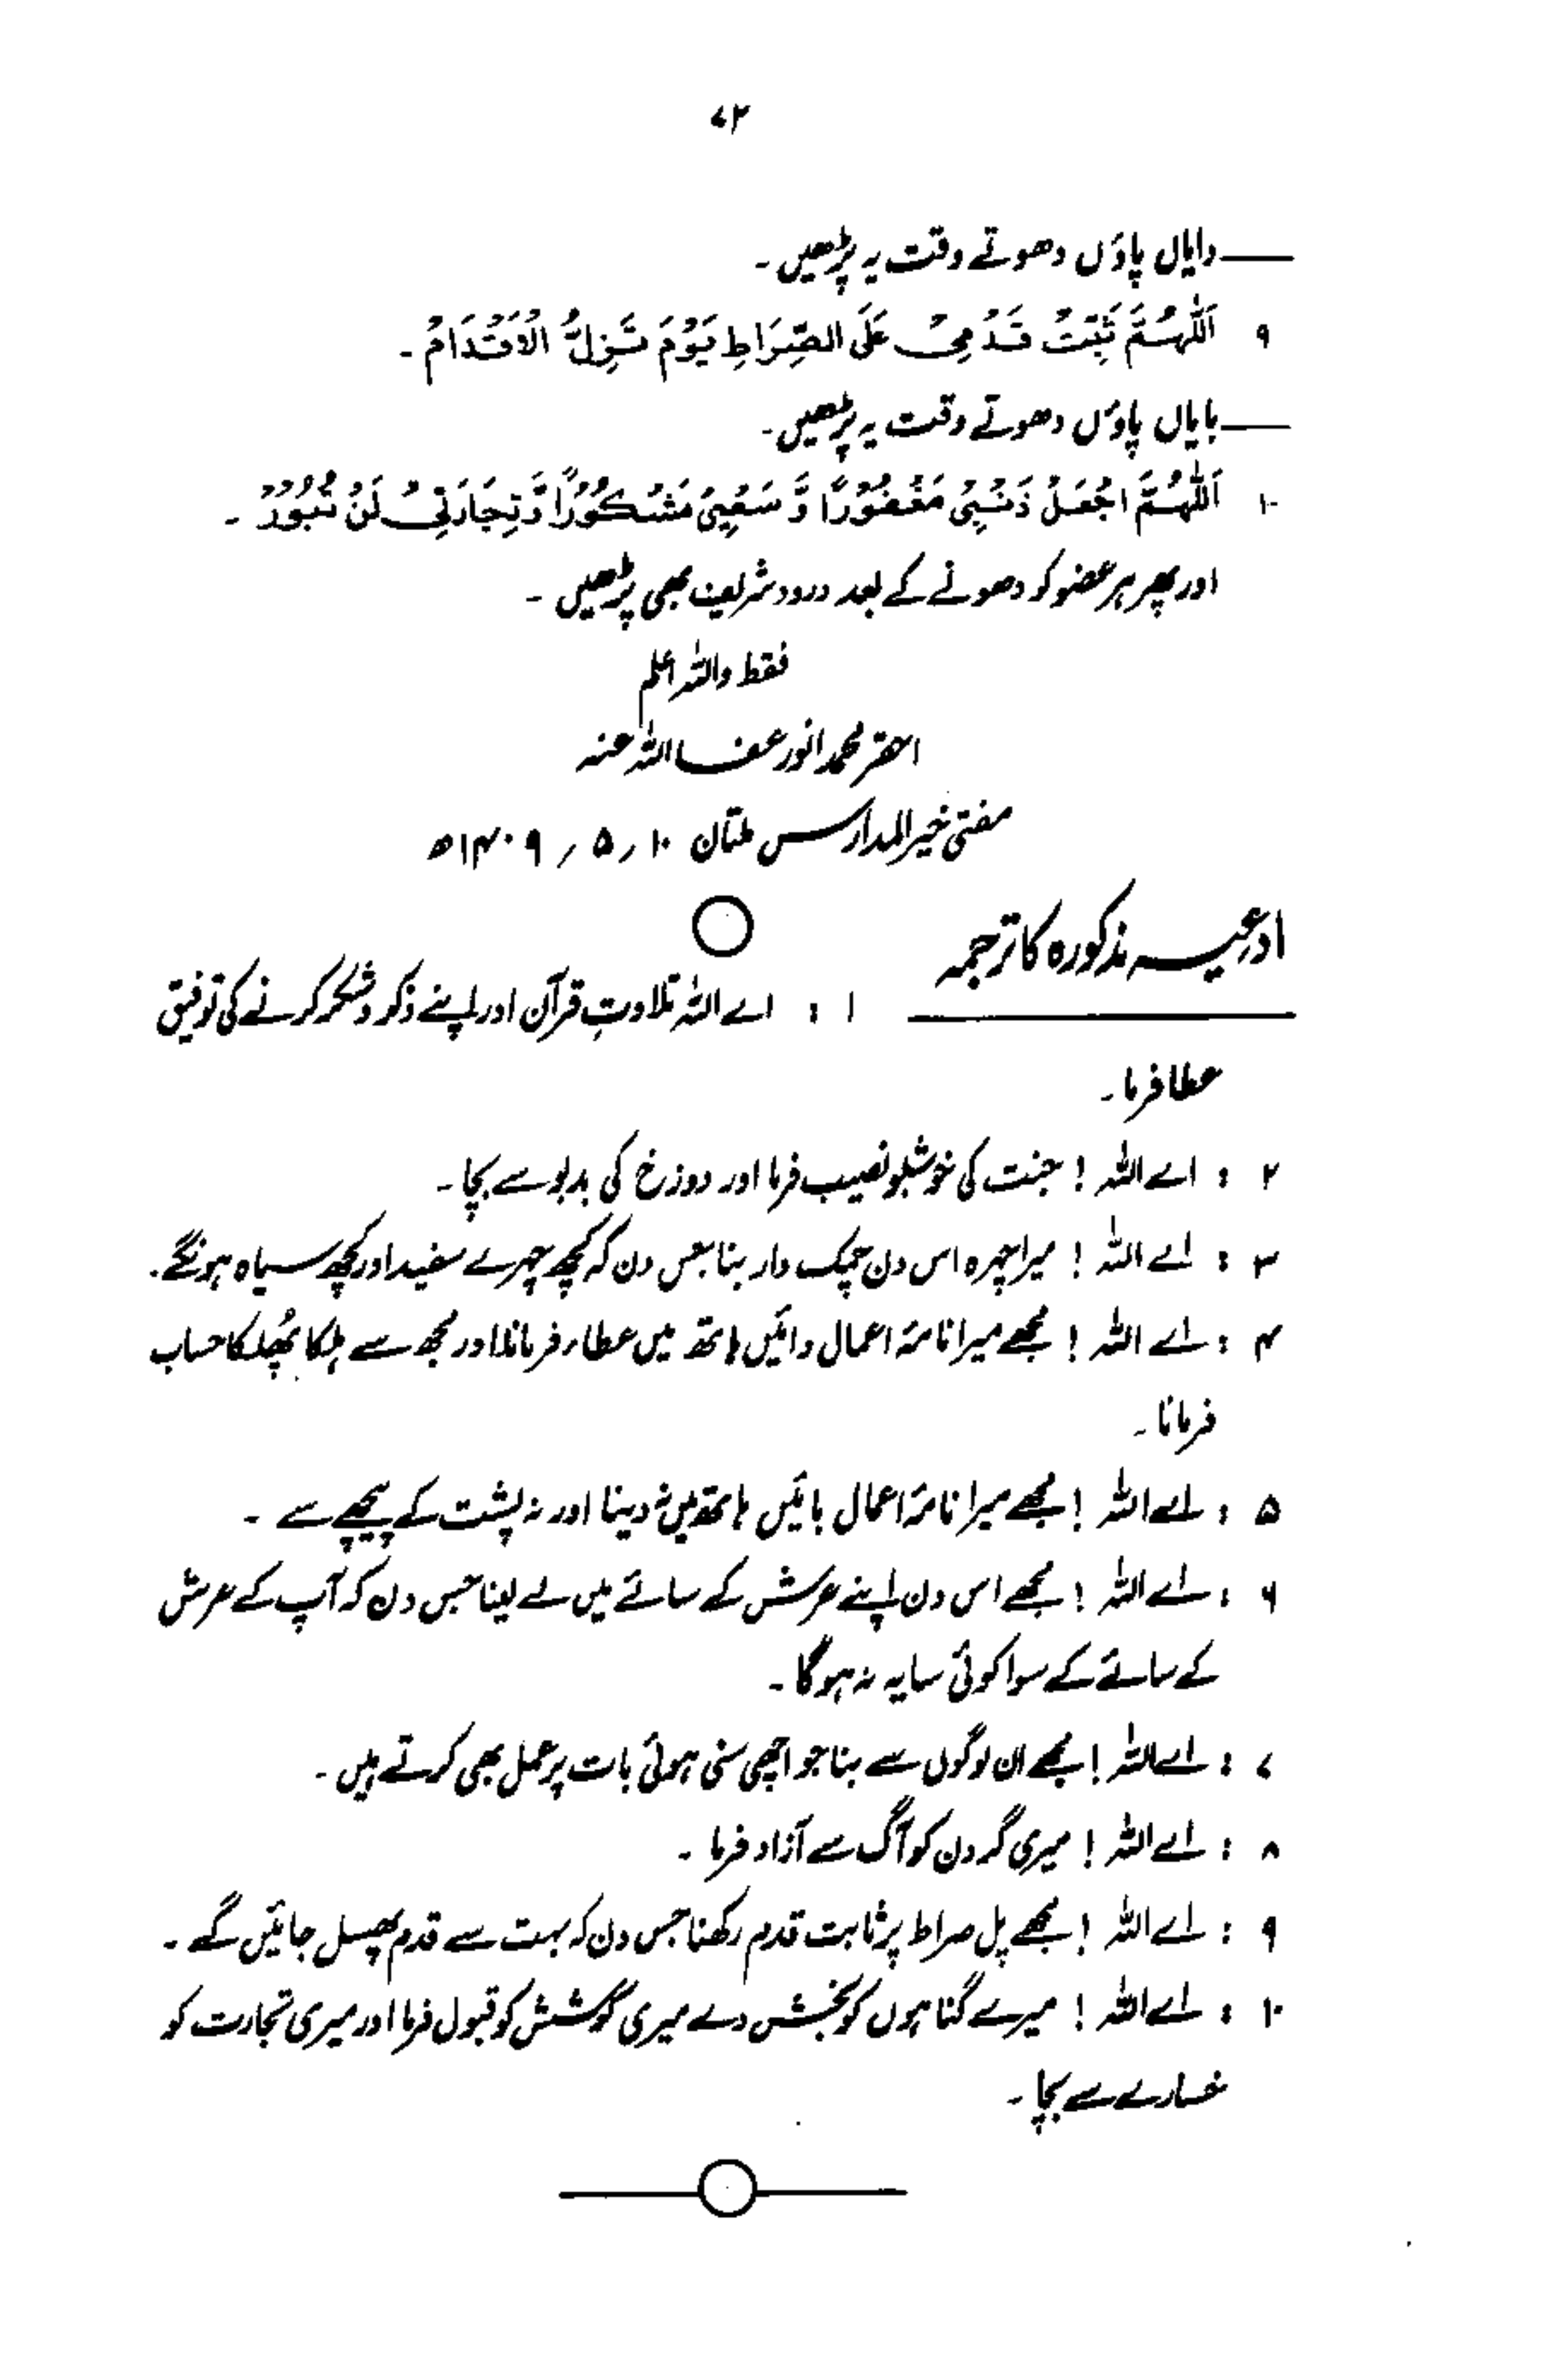 ۷۲
دایاں پاؤں دھوتے وقت یہ پڑھیں۔
۹ اَللّٰهُمَّ ثَبِّتْ قَدَمِیْ عَلَی الصِّرَاطِ یَوْمَ تَزِلُّ الْاَقْدَامُ۔
بایاں پاؤں دھوتے وقت یہ پڑھیں۔
۱۰ اَللّٰهُمَّ اجْعَلْ ذَنْبِیْ مَغْفُوْرًا وَّ سَعْیِیْ مَشْكُوْرًا وَّتِجَارَتِیْ لَنْ تَبُوْرَ۔
اور پھر ہر عضو کو دھونے کے بعد درود شریف بھی پڑھیں۔
فقط واللہ اعلم
احقر محمد انور عفا اللہ عنہ
مفتی خیر المدارس ملتان ۱۰؍۵؍۱۴۰۹ھ
ادعیہ مذکورہ کا ترجمہ
۱ : اے اللہ تلاوتِ قرآن اور اپنے ذکر و شکر کرنے کی توفیق
عطا فرما۔
۲ : اے اللہ ! جنت کی خوشبو نصیب فرما اور دوزخ کی بدبو سے بچا۔
۳ : اے اللہ ! میرا چہرہ اس دن چمک دار بنا جس دن کہ کچھ چہرے سفید اور کچھ سیاہ ہونگے۔
۴ : اے اللہ ! مجھے میرا نامۂ اعمال دائیں ہاتھ میں عطاء فرمانا اور مجھ سے ہلکا پھُلکا حساب
فرمانا۔
۵ : اے اللہ ! مجھے میرا نامۂ اعمال بائیں ہاتھ میں نہ دینا اور نہ پشت کے پیچھے سے۔
۶ : اے اللہ ! مجھے اس دن اپنے عرش کے سائے میں لے لینا جس دن کہ آپ کے عرش
کے سائے کے سوا کوئی سایہ نہ ہوگا۔
۷ : اے اللہ ! مجھے ان لوگوں سے بنا جو اچھی سنی ہوئی بات پر عمل بھی کرتے ہیں۔
۸ : اے اللہ ! میری گردن کو آگ سے آزاد فرما۔
۹ : اے اللہ ! مجھے پل صراط پر ثابت قدم رکھنا جس دن کہ بہت سے قدم پھسل جائیں گے۔
۱۰ : اے اللہ ! میرے گناہوں کو بخش دے میری کوشش کو قبول فرما اور میری تجارت کو
خسارے سے بچا۔